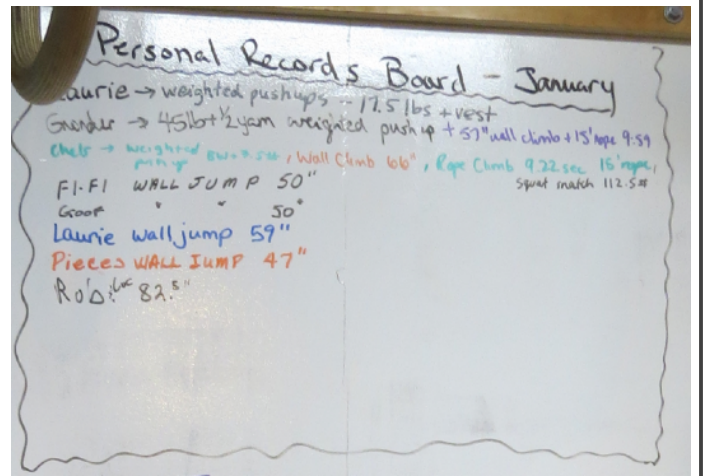 Personal Records Board - January
Laurie → weighted pushups - 17.5 lbs + vest
→ 45lb + 1/2 yam weighted push up + 57" wall climb + 15' rope 9:59
→ weighted pushup , Wall Climb 66", Rope Climb 9.22 sec 15' rope,
Squat match 112.5#
FI-FI WALL JUMP 50"
Goof " " 50"
Laurie wall jump 59"
Pieces WALL JUMP 47"
82.5"